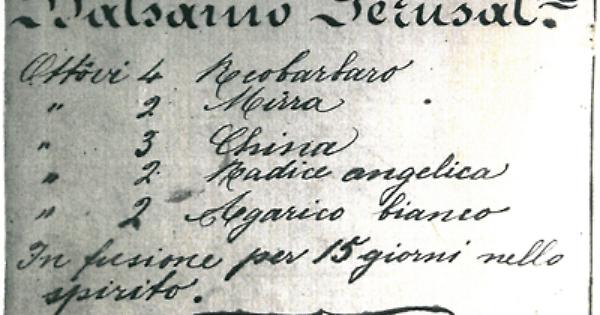 Balsamo Jerusal.
Ottovi 4 Reobarbaro
" 2 Mirra
" 3 China
" 2 Radice angelica
" 2 Agarico bianco
In fusione per 15 giorni nello
spirito.